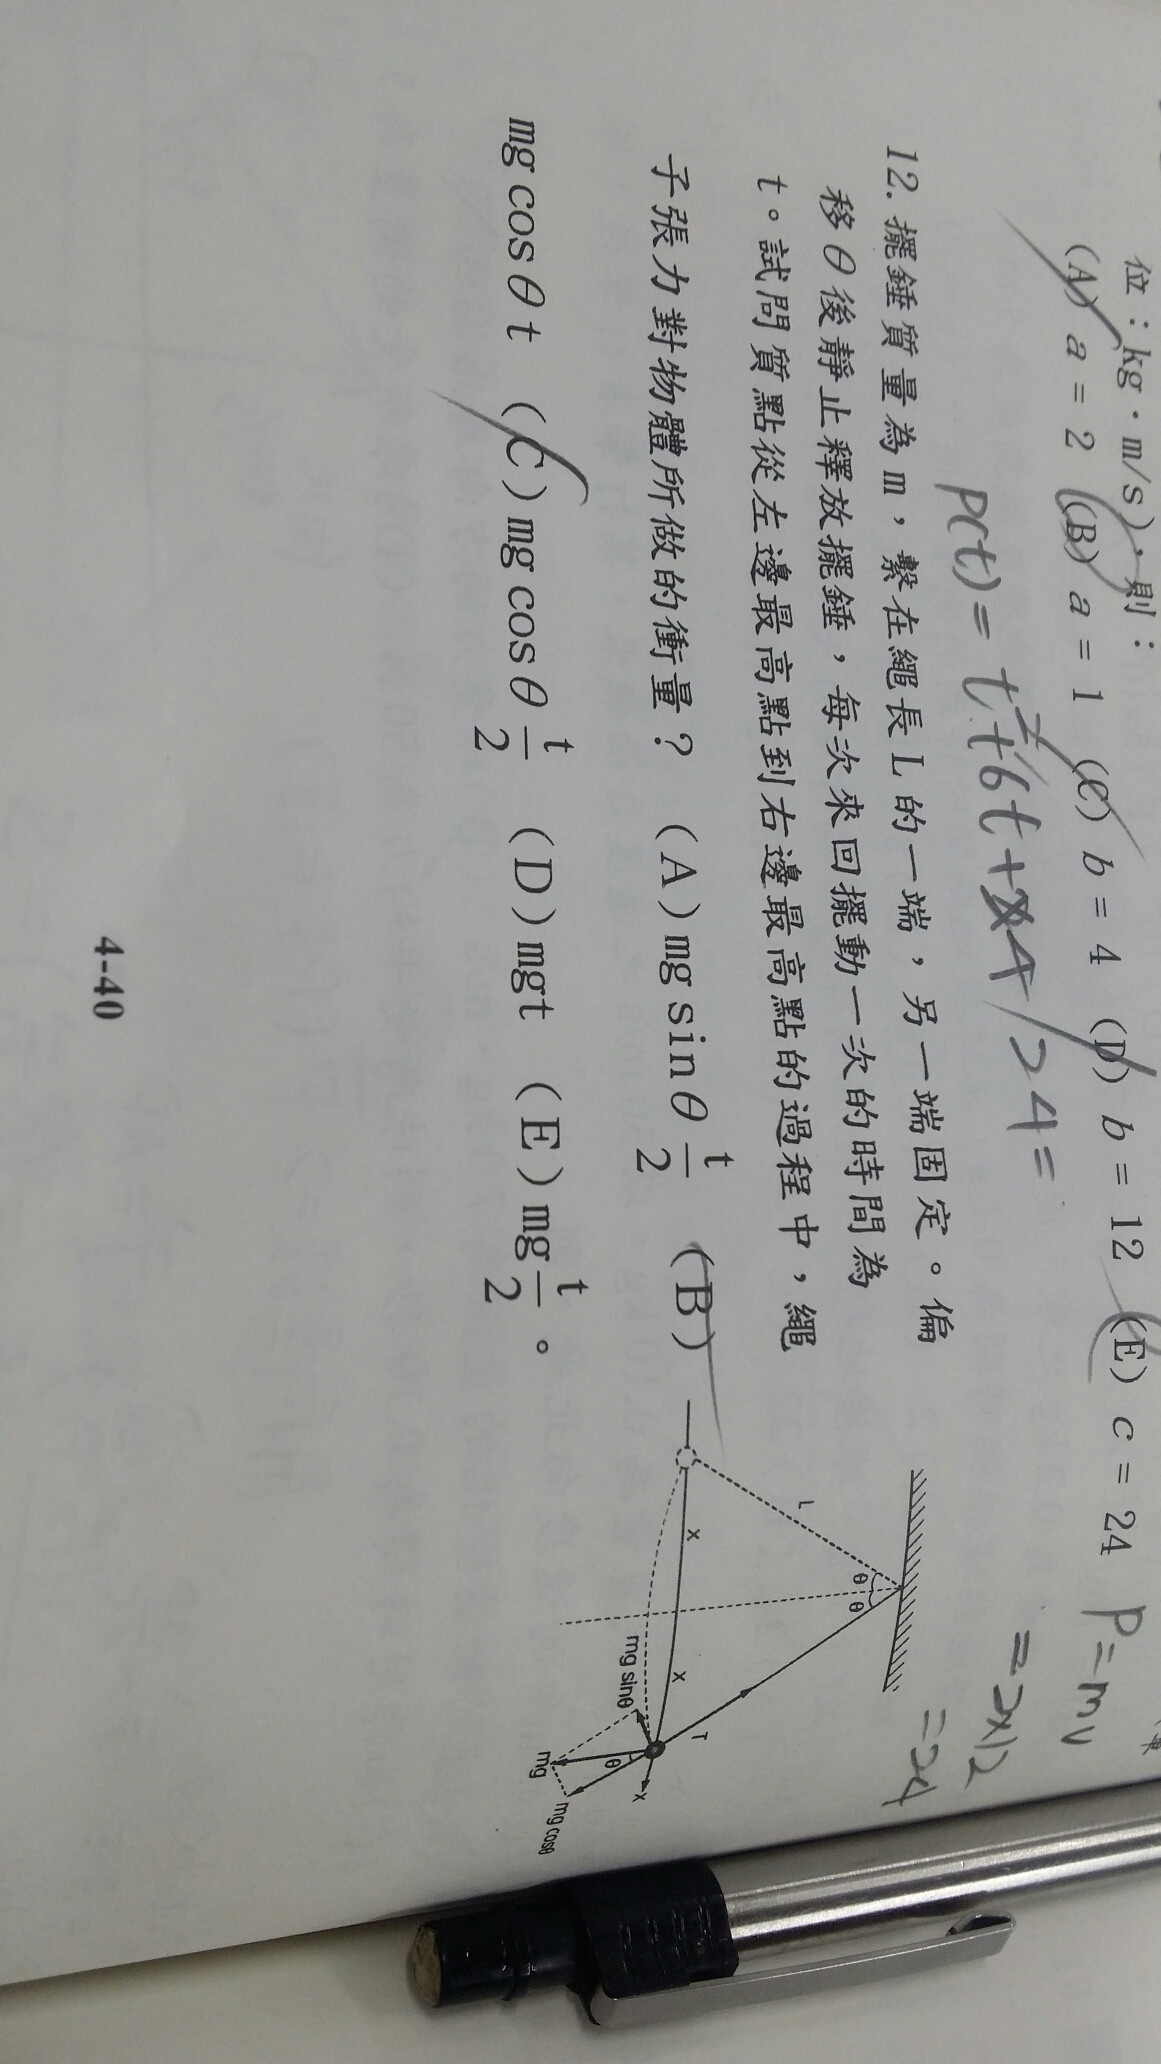 位：kg·m/s)，則：
(A) a = 2 (B) a = 1 (C) b = 4 (D) b = 12 (E) c = 24 P = mv
= 2×12
= 24
P(t) = t²+6t+4 24 =
12. 擺錘質量為m，繫在繩長L的一端，另一端固定。偏
移θ後靜止釋放擺錘，每次來回擺動一次的時間為
t。試問質點從左邊最高點到右邊最高點的過程中，繩
子張力對物體所做的衝量？ (A) mg sinθ t/2 (B)
mg cosθ t (C) mg cosθ t/2 (D) mgt (E) mg t/2 。
L
θ θ
T
x x x
mg sinθ
θ
mg
mg cosθ
4-40